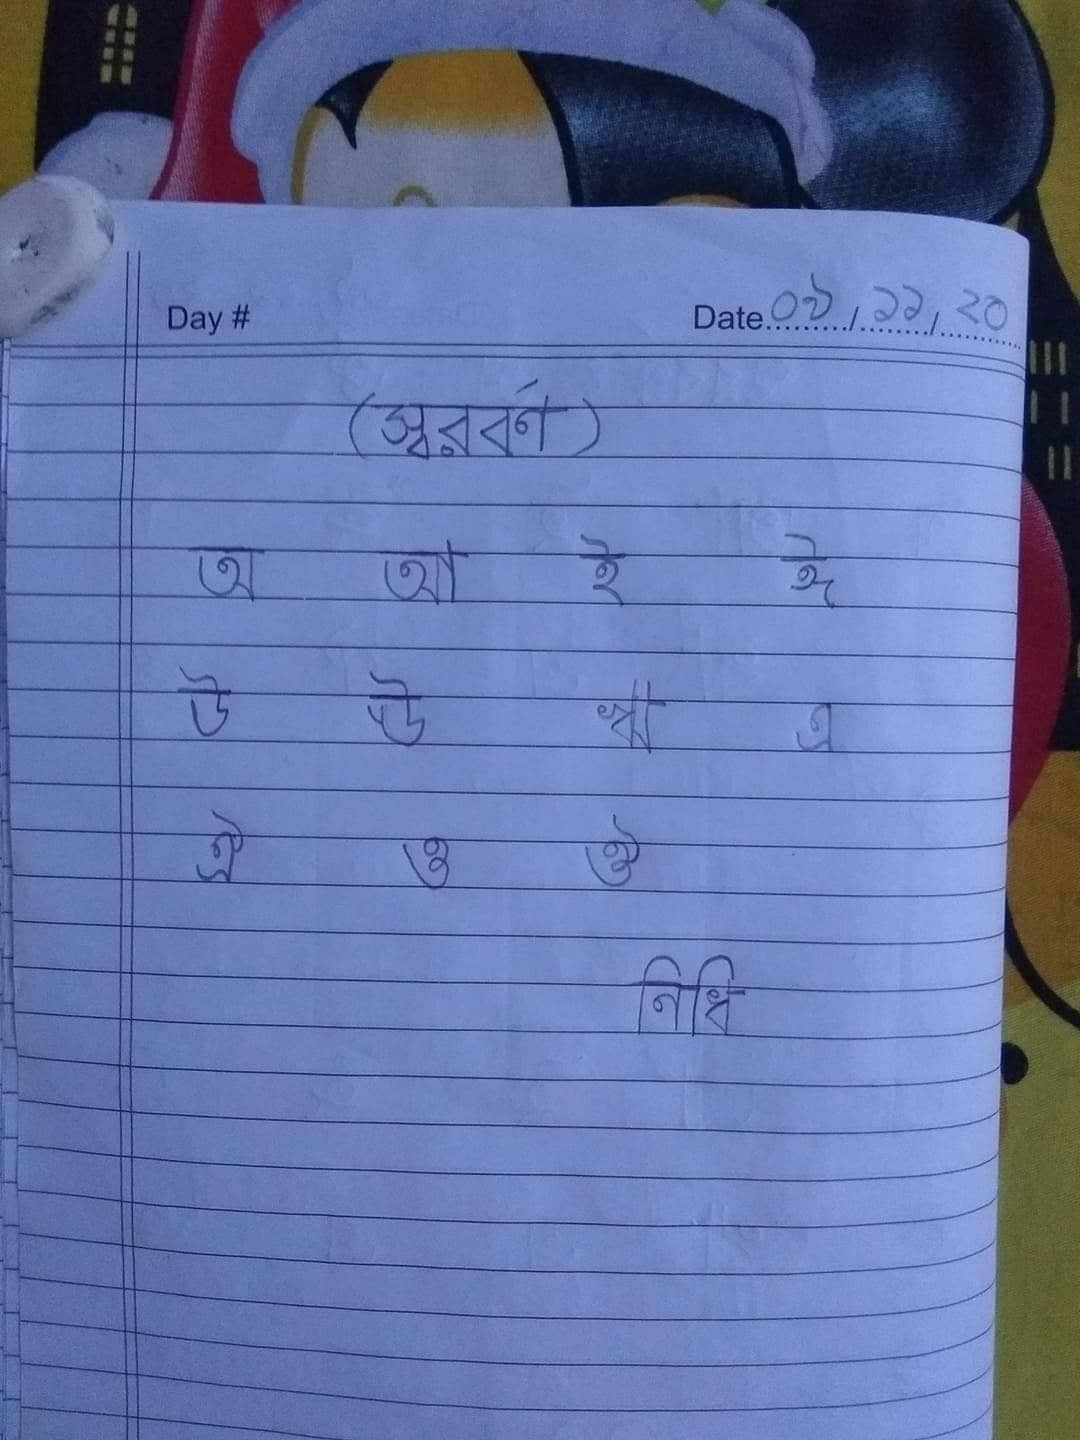 Day # Date ০৯/১১/২০
(স্বরবর্ণ)
অ আ ই ঈ
উ ঊ ঋ এ
ঐ ও ঔ
নিধি